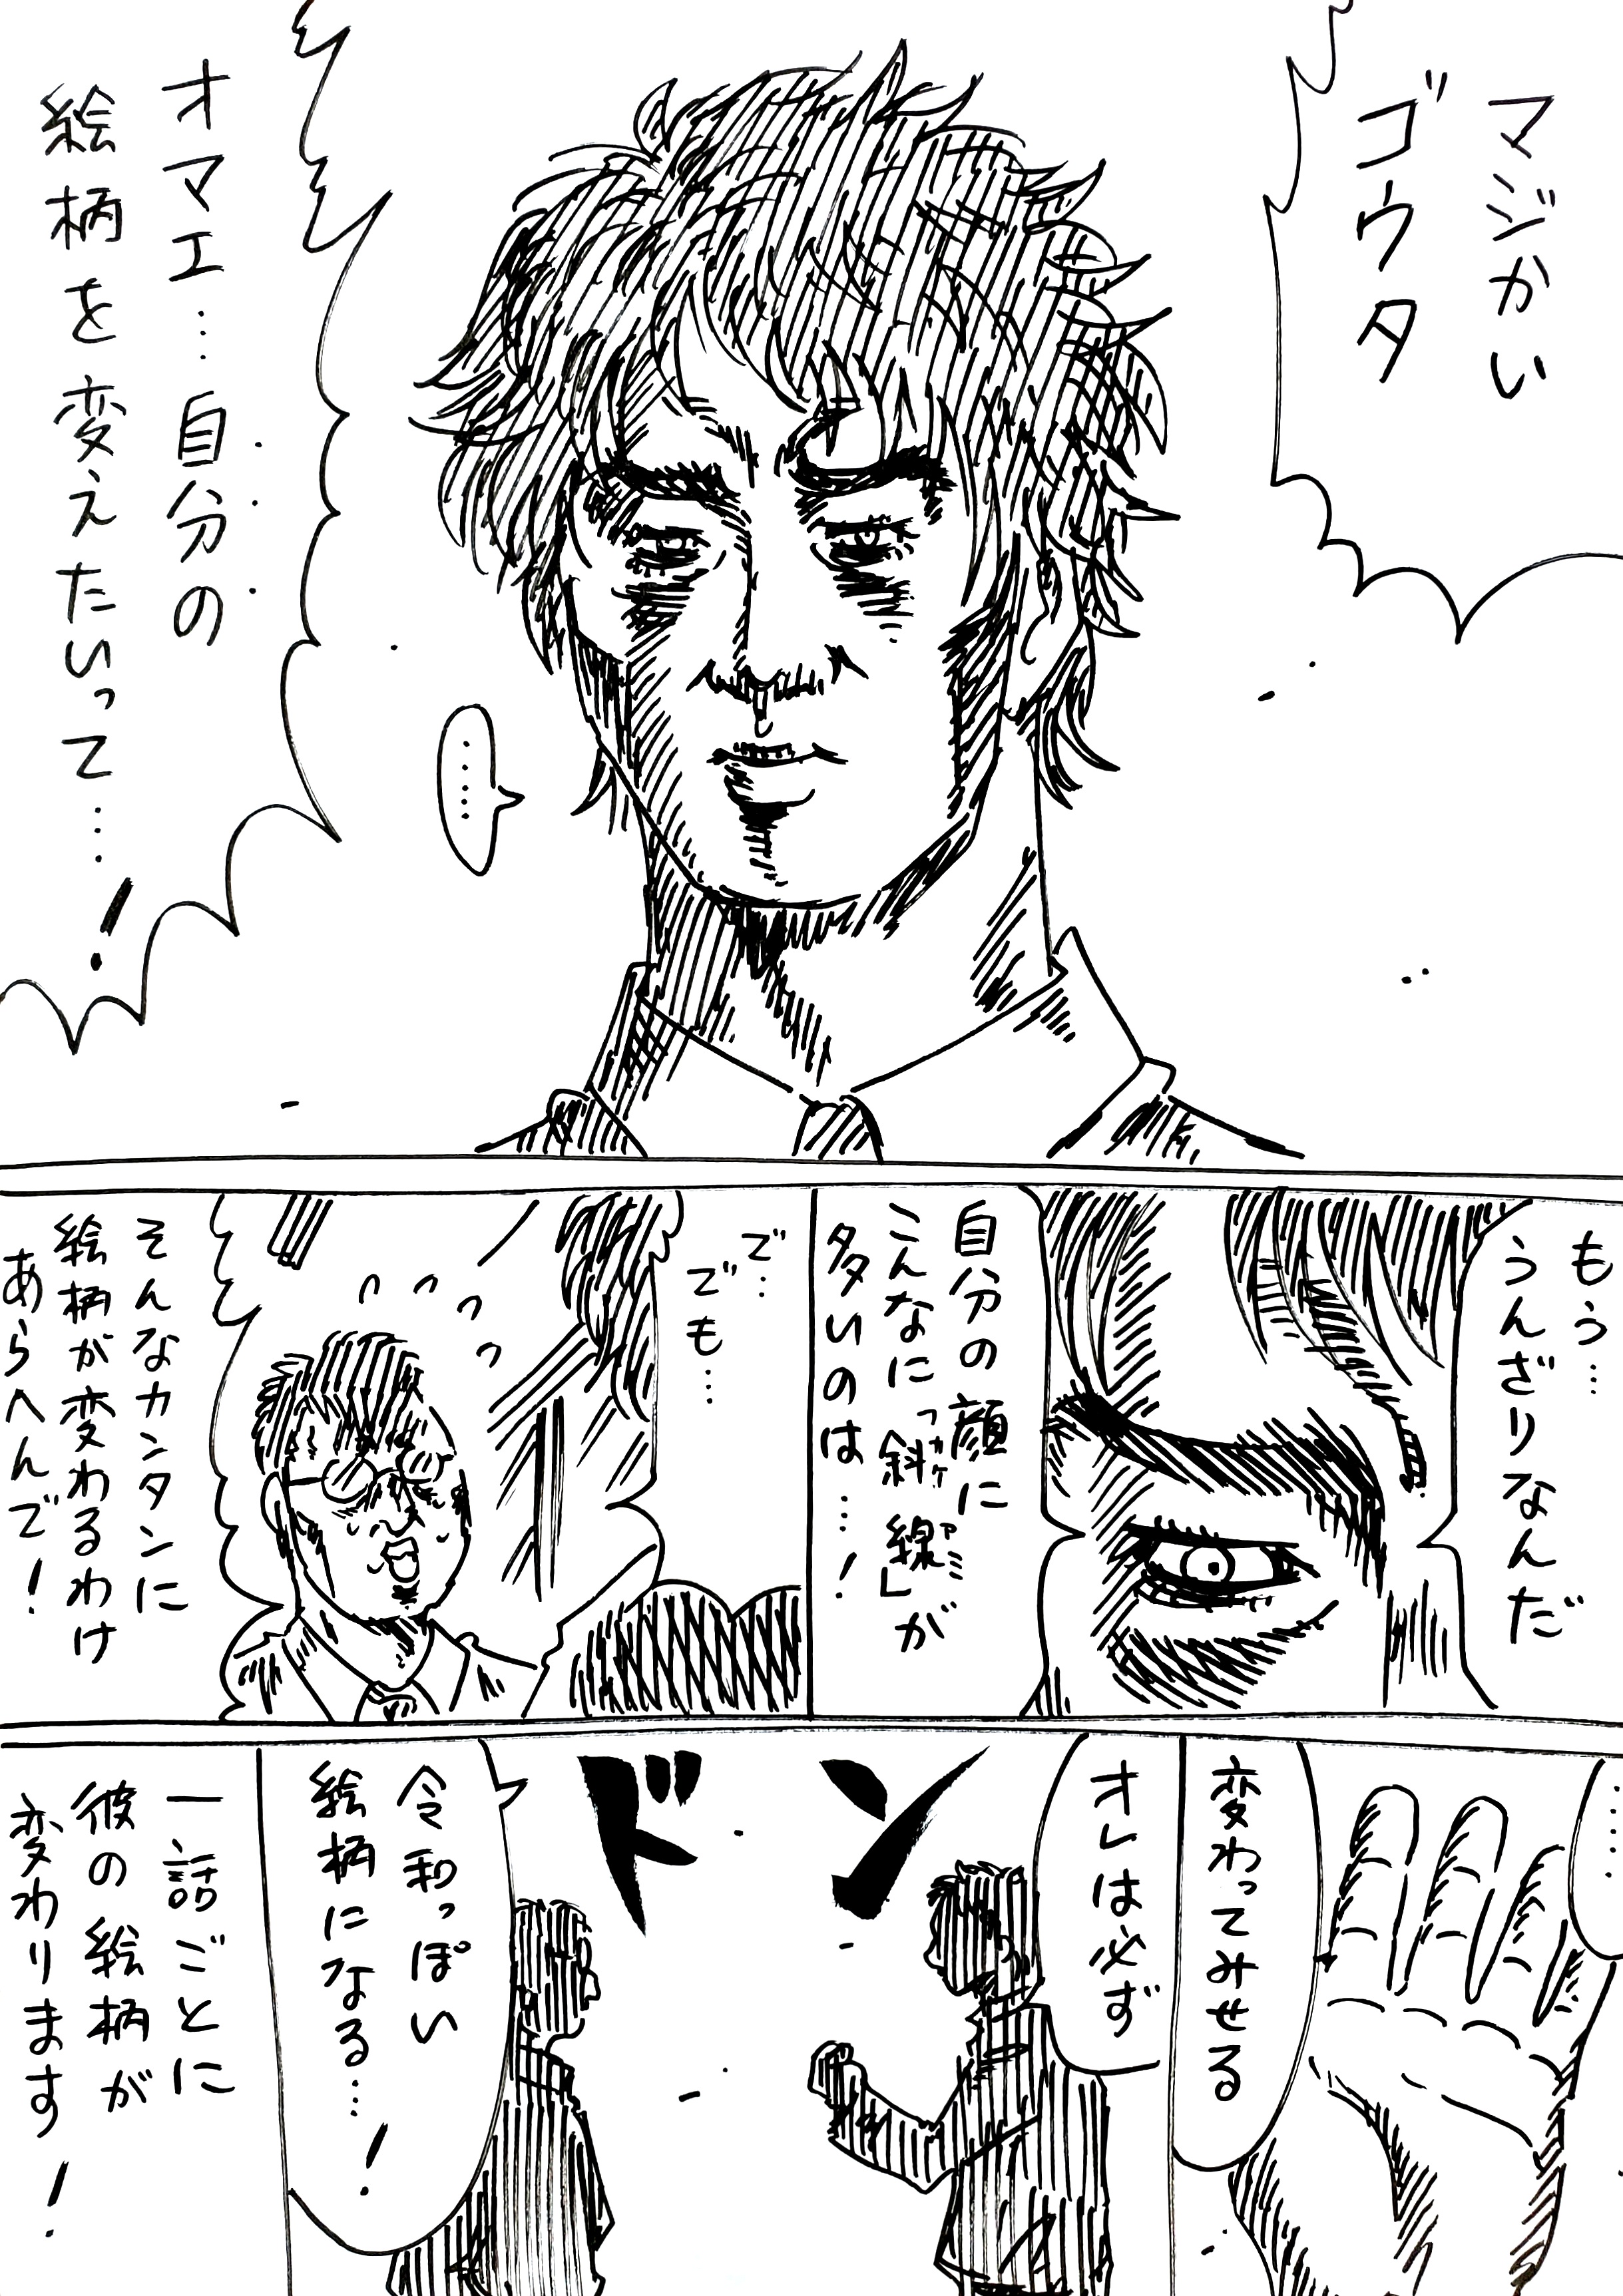 マジかい
ゴウタ
オマエ…自分の
絵柄を変えたいって…!
……
もう…
うんざりなんだ
自分の顔に
こんなに「斜線」が
カケアミ
多いのは…!
で…
でも…
そんなカンタンに
絵柄が変わるわけ
あらへんで!
……
変わってみせる
オレは必ず
ドン
令和っぽい
絵柄になる…!
一話ごとに
彼の絵柄が
変わります!